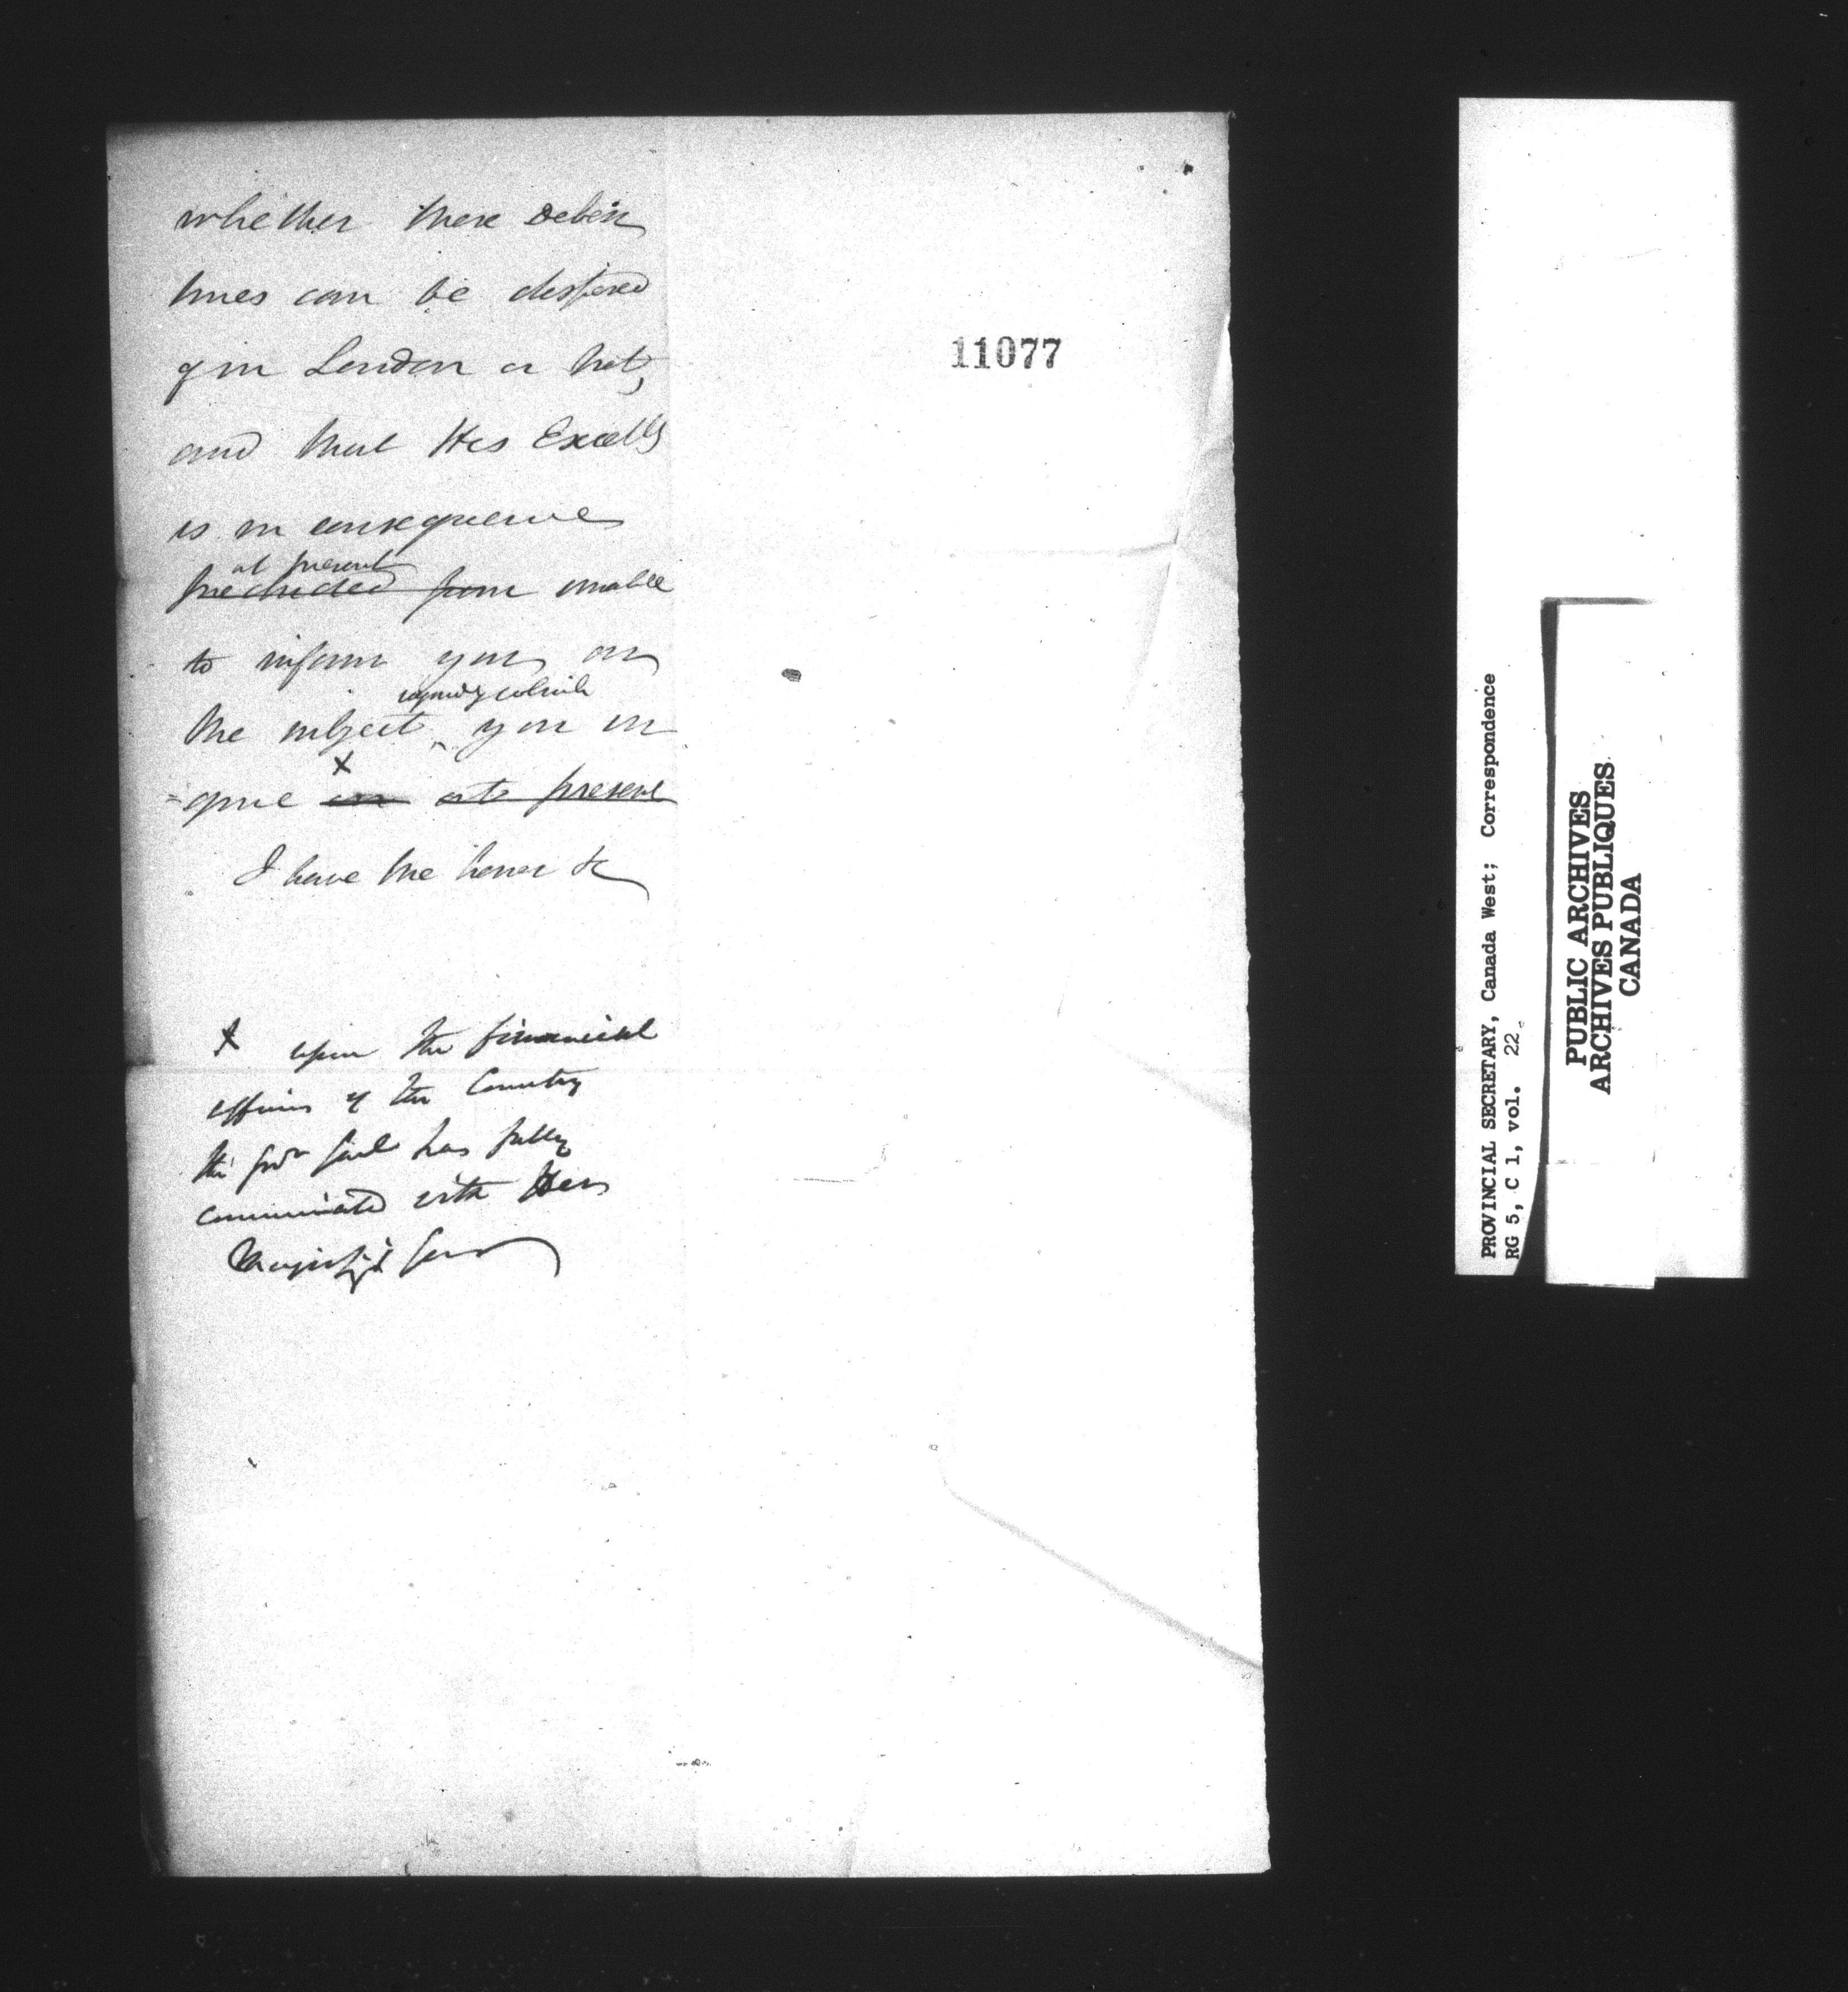 whether these Deben
tures can be disposed
of in London or not,
and that His Excelly
is in consequence
at present
precluded from unable
to inform you on
the subject you in
x
=quire on at present
I have the honor &c
x upon the financial
affairs of the Country
the Govr Genl has fully
communicated with Her
Majesty's Govt
11077
PROVINCIAL SECRETARY, Canada West; Correspondence
RG 5, C 1, vol. 22.
PUBLIC ARCHIVES
ARCHIVES PUBLIQUES
CANADA